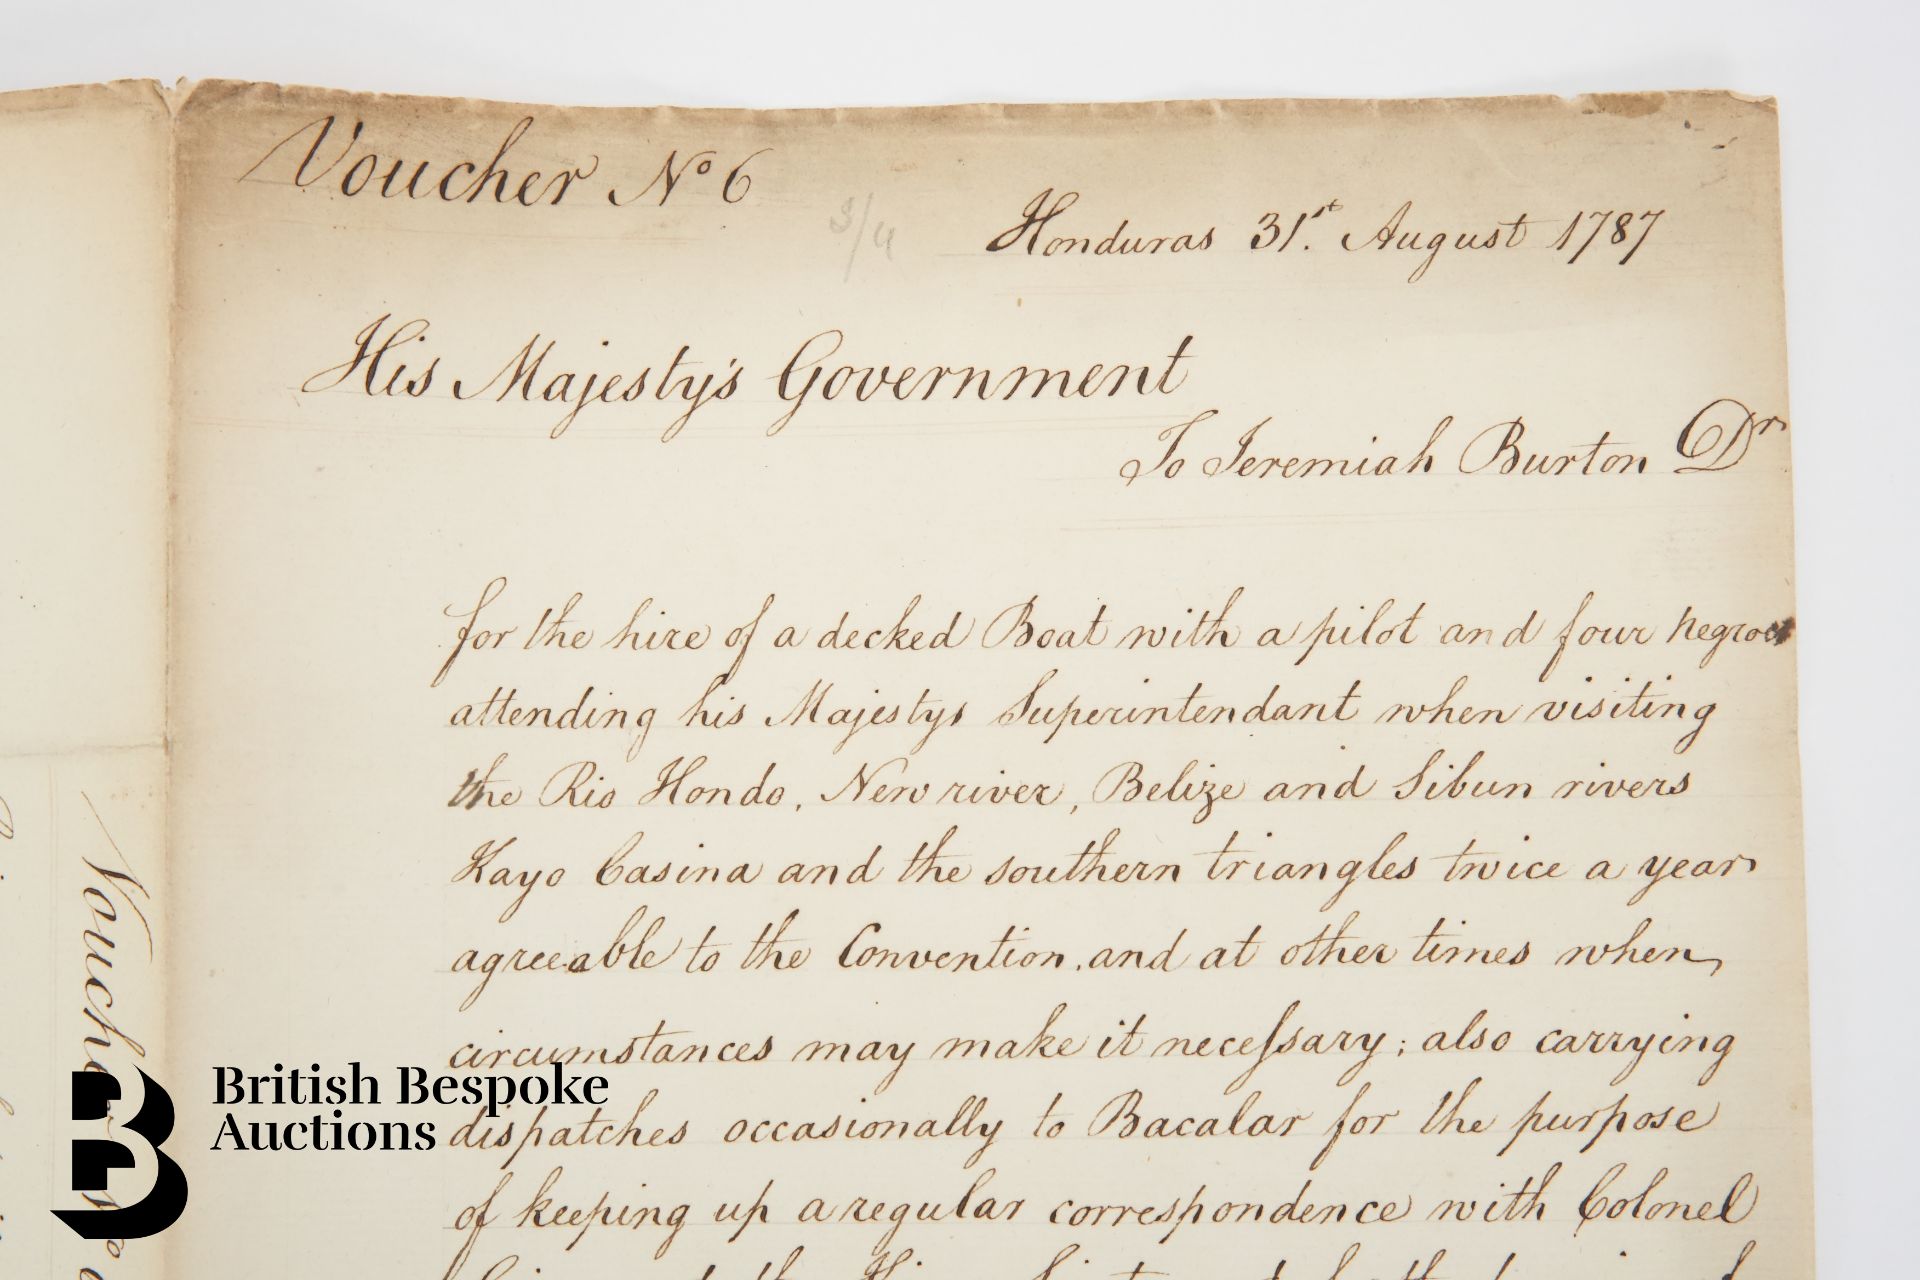 Voucher No 6
3/4
Honduras 31st. August 1787
His Majesty's Government
To Jeremiah Burton Dr
for the hire of a decked Boat with a pilot and four negroes
attending his Majestys Superintendant when visiting
the Rio Hondo, New river, Belize and Sibun rivers
Kayo Casina and the southern triangles twice a year
agreeable to the Convention. and at other times when
circumstances may make it neceſsary; also carrying
dispatches occasionally to Bacalar for the purpose
of keeping up a regular correspondence with Colonel
Voucher No
British Bespoke
Auctions